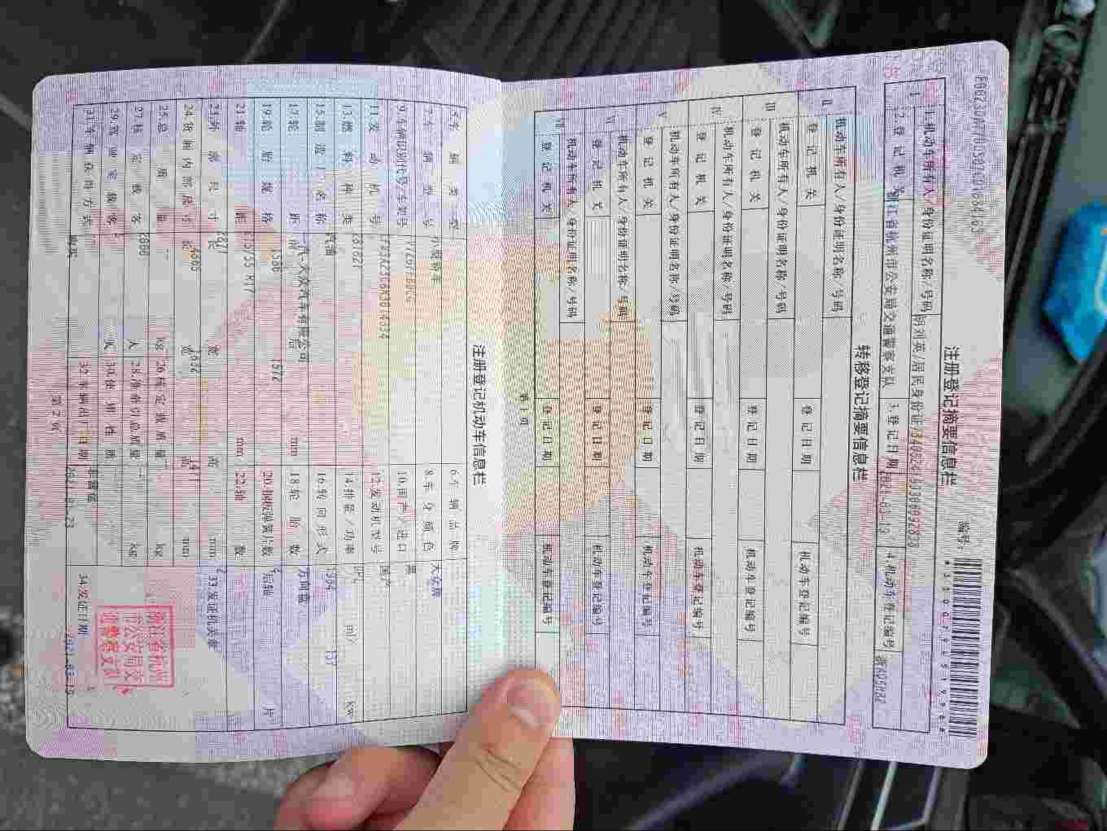 注册登记摘要信息栏
编号:
Ⅰ
1.机动车所有人/身份证明名称/号码
居民身份证
2.登记机关 浙江省杭州市公安局交通警察支队 3.登记日期 4.机动车登记编号
转移登记摘要信息栏
Ⅱ
机动车所有人/身份证明名称/号码
登记机关 登记日期 机动车登记编号
Ⅲ
机动车所有人/身份证明名称/号码
登记机关 登记日期 机动车登记编号
Ⅳ
机动车所有人/身份证明名称/号码
登记机关 登记日期 机动车登记编号
Ⅴ
机动车所有人/身份证明名称/号码
登记机关 登记日期 机动车登记编号
Ⅵ
机动车所有人/身份证明名称/号码
登记机关 登记日期 机动车登记编号
Ⅶ
机动车所有人/身份证明名称/号码
登记机关 登记日期 机动车登记编号
第1页
注册登记机动车信息栏
5.车辆类型 小型轿车 6.车辆品牌 大众牌
7.车辆型号 8.车身颜色 黑
9.车辆识别代号/车架号 10.国产/进口 国产
11.发动机号 12.发动机型号
13.燃料种类 汽油 14.排量/功率 1984 ml/ 137 kw
15.制造厂名称 一汽-大众汽车有限公司 16.转向形式 方向盘
17.轮距 前 1586 后 1572 mm 18.轮胎数
19.轮胎规格 20.钢板弹簧片数 后轴 片
21.轴距 mm 22.轴数 2
23.外廓尺寸 长 宽 高 mm 33.发证机关章
24.货厢内部尺寸 长 宽 高 mm
25.总质量 kg 26.核定载质量 kg
27.核定载客 人 28.准牵引总质量 kg
29.驾驶室载客 人 30.使用性质 非营运
31.车辆获得方式 购买 32.车辆出厂日期 34.发证日期
浙江省杭州
市公安局交
通警察支队
第2页